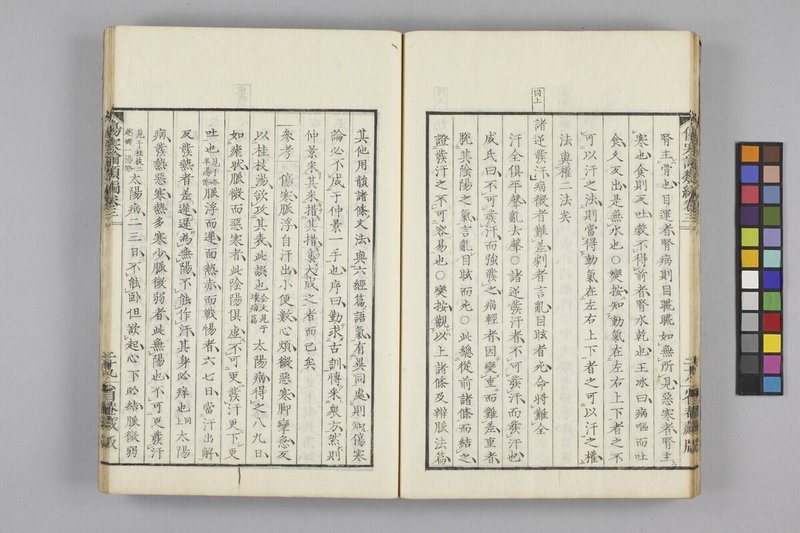 腎主骨也目運者腎病則目䀮䀮如無所見惡寒者腎主
寒也食則反吐穀不得前者腎水乾也王冰曰病嘔而吐
食久反出是無水也○變按知動氣在左右上下者之不
可以汗之法則當得動氣在左右上下者之可以汗之權
法與權二法矣
同上
諸逆發汗病微者難差劇者言亂目眩者死命將難全
汗全俱平聲亂去聲○諸逆發汗者不可發汗而發汗也
成氏曰不可發汗而強發之病輕者因變重而難差重者
脫其陰陽之氣言亂目眩而死○此總從前諸條而結之
證發汗之不可容易也○變按觀以上諸條及辨脈法篇
其他用韻諸條文法與六經篇語氣有異同處則知傷寒
論必不成于仲景一手也序曰勤求古訓博采衆方然則
仲景采其采措其措集大成之者而已矣
參考 傷寒脈浮自汗出小便數心煩微惡寒脚攣急反
以桂枝湯欲攻其表此誤也全文見于壞病篇 太陽病得之八九日
如瘧狀脈微而惡寒者此陰陽俱虛不可更發汗更下更
吐也見于各半湯條 脈浮而遲面熱赤而戰惕者六七日當汗出解
反發熱者差遲遲為無陽不能作汗其身必痒也同上 太陽
病發熱惡寒熱多寒少脈微弱者此無陽也不可更發汗
見于桂枝二越婢一湯條 太陽病二三日不能臥但欲起心下必結脈微弱